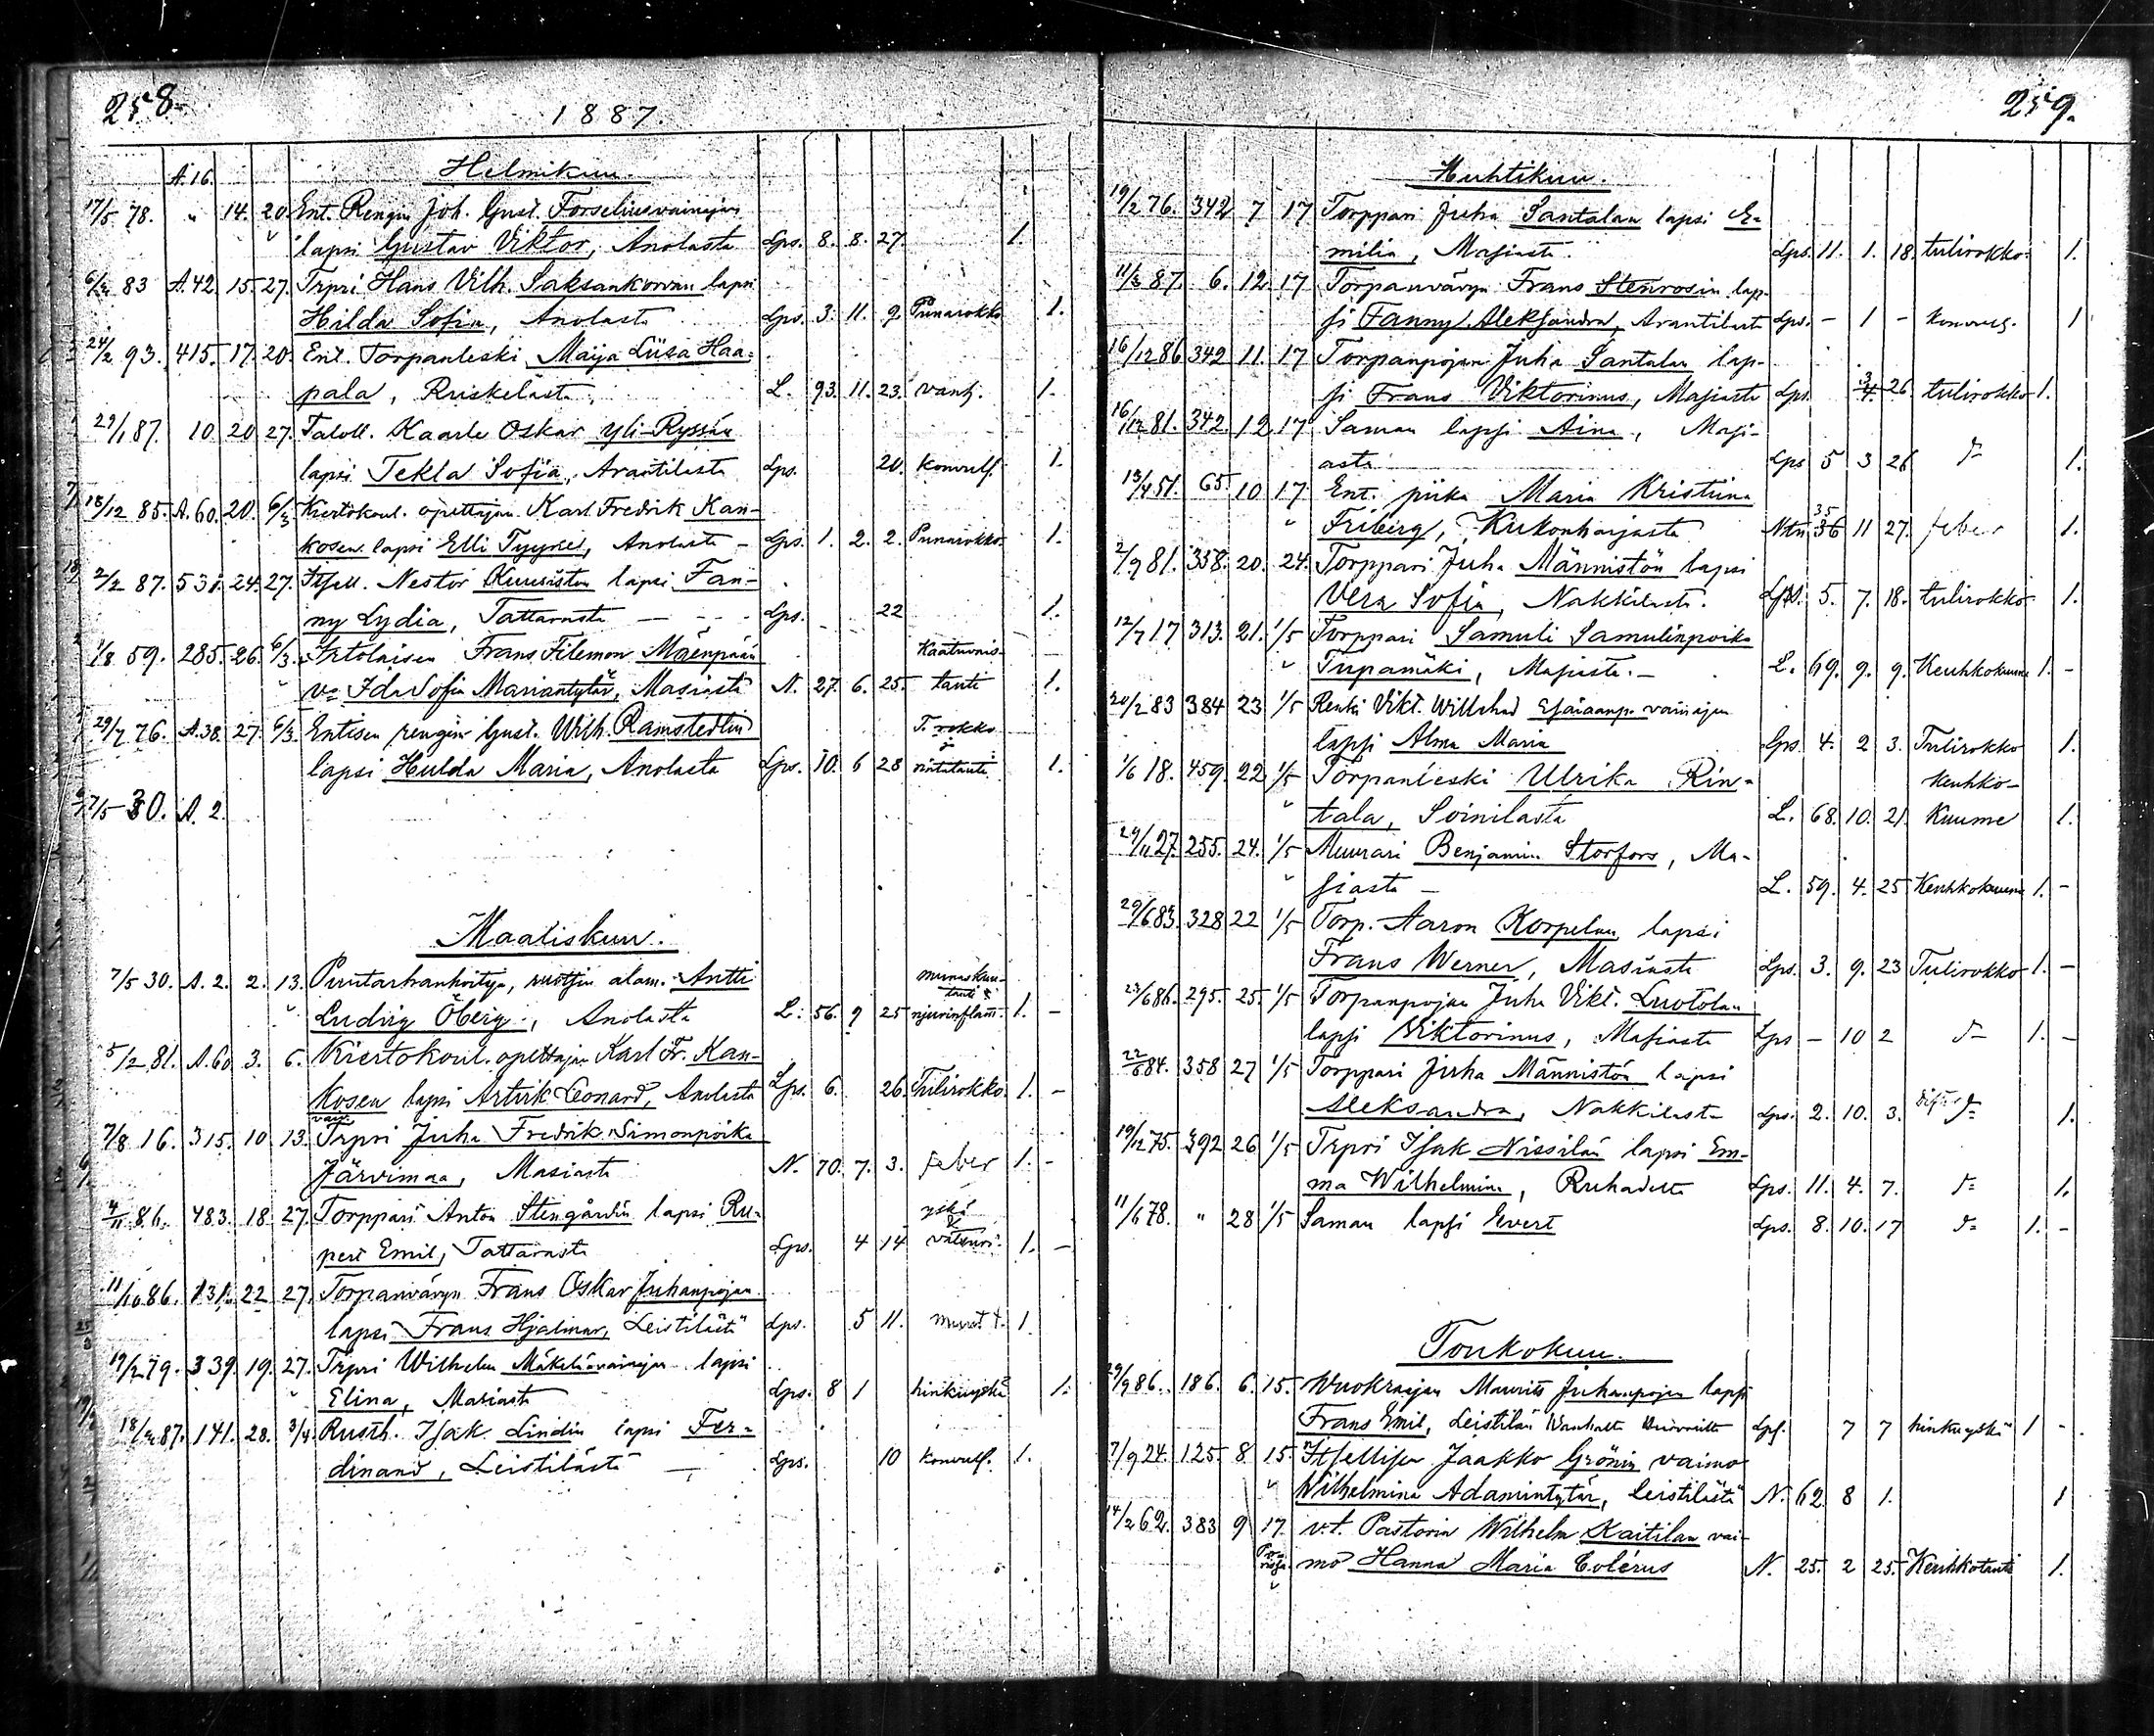 258.
1887.
A.16. Helmikuu.
17/5 78. " 14. 20 Ent. Rengin Joh. Gust. Forseliusvainajan
lapsi Gustav Viktor, Anolasta Lps. 8. 8. 27. 1.
83 A.42. 15. 27. Trpri Hans Vilh. Saksankorvan lapsi
Hilda Sofia, Anolasta Lps. 3. 11. 9. Punarokko 1.
24/2 93. 415. 17. 20. Ent. Torpanleski Maija Liisa Haa-
pala, Ruskelasta L. 93. 11. 23. vanh. 1.
29/1 87. 10 20 27. Taloll. Kaarle Oskar Yli-Ryssän
lapsi Tekla Sofia, Arantilasta Lps. 20. Konvuls. 1.
18/12 85. A.60. 20. 6/3 Kiertokoul. opettajan Karl Fredrik Kan-
kosen lapsi Elli Tyyne, Anolasta - Lps. 1. 2. 2. Punarokko. 1.
2/2 87. 531. 24. 27. Itsell. Nestor Kuusiston lapsi Fan-
ny Lydia, Tattarasta Lps. 22 1.
1/8 59. 285. 26. 6/3. Irtolaisen Frans Filemon Mäenpään Kaatuvais-
vo Ida Sofia Mariantytär, Masiasta N. 27. 6. 25. tauti 1.
29/7 76. A.38. 27. 6/3. Entisen rengin Gust. Wilh. Ramstedtin T. rokko
lapsi Hulda Maria, Anolasta Lps. 10. 6 28 rintatauti 1.
7/5 30. A. 2.
Maaliskuu.
7/5 30. A. 2. 2. 13. Puutarhanhoitaja, ruotsin alam. Antti munaskuu-
" Ludvig Öberg, Anolasta L. 56. 9 25 tauti njurinflam. 1. -
5/2 81. A.60 3. 6. Kiertokoul. opettajan Karl Fr. Kan-
kosen lapsi Arturk Leonard, Anolasta Lps. 6. 26. Tulirokko 1. -
7/8 16. 315. 10 13. Trpri Juha Fredrik Simonpoika
Järvimaa, Masiasta N. 70. 7. 3. feber 1. -
4/11 86. 483. 18. 27. Torppari Anton Stengårdin lapsi Ru- yskä
pert Emil, Tattarasta Lps. 4 14 & 1. -
11/10 86. 131. 22 27. Torpanvävyn Frans Oskar Juhanpojan
lapsi Frans Hjalmar, Leistilästä Lps. 5 11. muut t. 1.
19/2 79. 339. 19. 27. Trpri Wilhelm Mäkelävainajan lapsi
" Elina, Masiasta Lps. 8 1 hinkuyskä 1.
18/3 87. 141. 28. 3/4 Rusth. Isak Lindin lapsi Fer-
dinand, Leistilästä Lps. 10 Konvuls. 1.
259.
Huhtikuu.
19/2 76. 342 7 17 Torppari Juha Santalan lapsi E-
milia, Masiasta. Lps. 11. 1. 18. tulirokko. 1.
11/3 87. 6. 12. 17 Torpanvävyn Frans Stenrosin lap-
si Fanny Aleksandra, Arantilasta Lps. - 1 - Konvuls. 1
16/12 86 342 11. 17 Torpanpojan Juha Santalan lap-
si Frans Viktorinus, Masiasta Lps. 3 26 tulirokko 1.
16/12 81. 342. 12. 17 Saman lapsi Aina, Masi-
asta Lps 5 3 26 d:o 1.
13/4 51. 65. 10 17. Ent. piika Maria Kristiina
" Friberg, Kirkonharjasta Ntn 35 36 11 27. feber 1.
2/9 81. 358. 20. 24. Torppari Juha Männistön lapsi
Vera Sofia, Nakkilasta. Lps. 5. 7. 18. tulirokko 1.
12/7 17 313. 21. 1/5 Torppari Samuli Samulinpoika
" Tupamäki, Masiasta. - L. 69. 9. 9. Keuhkokuume 1. -
28/2 83 384 23 1/5 Renki Vikt. Willehad Esaiaanp. vainajan
lapsi Alma Maria Lps. 4. 2 3. Tulirokko 1.
1/6 18. 459. 22 1/5 Torpanleski Ulrika Rin- Keuhko-
" tala, Soinilasta L. 68. 10. 21. Kuume 1.
29/11 27. 255. 24. 1/5 Muurari Benjamin Storfors, Ma-
" siasta - L. 59. 4. 25 Keuhkokuume 1. -
29/6 83. 328 22 1/5 Torp. Aaron Korpelan lapsi
Frans Werner, Masiasta Lps. 3. 9. 23 Tulirokko 1. -
23/6 86. 295. 25. 1/5 Torpanpojan Juha Vikt. Luotolan
lapsi Viktorinus, Masiasta Lps - 10 2 d:o 1. -
22/6 84. 358 27 1/5 Torppari Juha Männistön lapsi
Aleksandra, Nakkilasta Lps. 2. 10. 3. d:o 1.
19/12 75. 392 26 1/5 Trpri Isak Nissilän lapsi Em-
ma Wilhelmina, Ruhadelta Lps. 11. 4. 7. d:o 1.
11/6 78. " 28 1/5 Saman lapsi Evert Lps. 8. 10. 17 d:o 1. -
Toukokuu.
29/9 86. 186. 6. 15. Wuokraajan Maurits Juhanpojan lapsi
Frans Emil, Leistilän Lps. 7 7 hinkuyskä 1 -
7/9 24. 125. 8 15. Itsellisen Jaakko Grönin vaimo
" Wilhelmina Adamintytär, Leistilästä N. 62 8 1. 1
14/2 62. 383 9 17. v.t. Pastorin Wilhelm Kaitilan vai-
mo Hanna Maria Colérus N. 25. 2 25. Keuhkotauti 1.